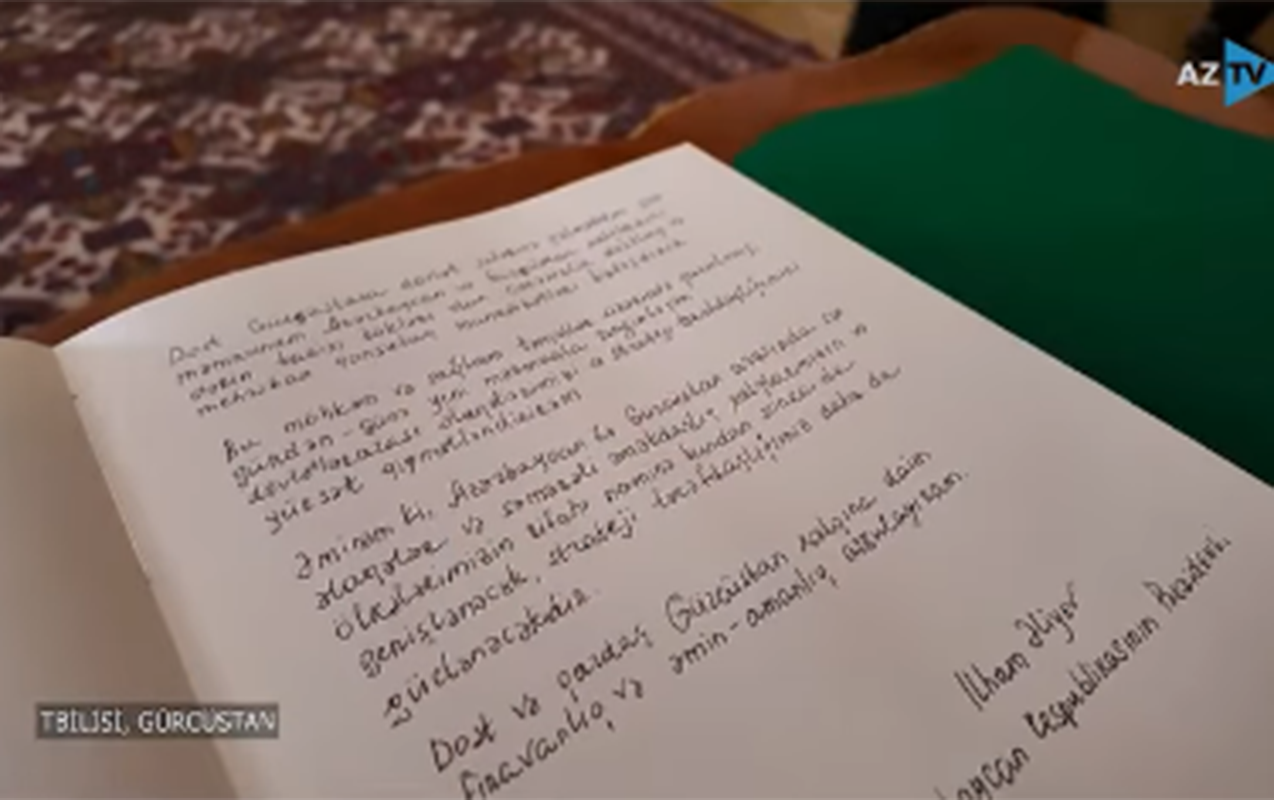 AZTV
Dost Gürcüstana dövlət səfərinə gəlməkdən çox
məmnunam. Azərbaycan və Gürcüstan xalqlarını
dərin tarixi köklərə olan
əsrlərdən münasibətlər birləşdirir.
Bu möhkəm və sağlam təməllər üzərində qurulmuş,
gündən-günə yeni məzmunla zənginləşən
dövlətlərarası əlaqələrimizi və strateji tərəfdaşlığımızı
yüksək qiymətləndirirəm.
Əminəm ki, Azərbaycan ilə Gürcüstan arasında sıx
əlaqələr və səmərəli əməkdaşlıq xalqlarımızın və
ölkələrimizin rifahı naminə bundan sonra da
genişlənəcək, strateji tərəfdaşlığımız daha da
güclənəcəkdir.
Dost və qardaş Gürcüstan xalqına daim
firavanlıq və əmin-amanlıq arzulayıram.
İlham Əliyev
baycan Respublikasının Prezidenti.
TBİLİSİ, GÜRCÜSTAN